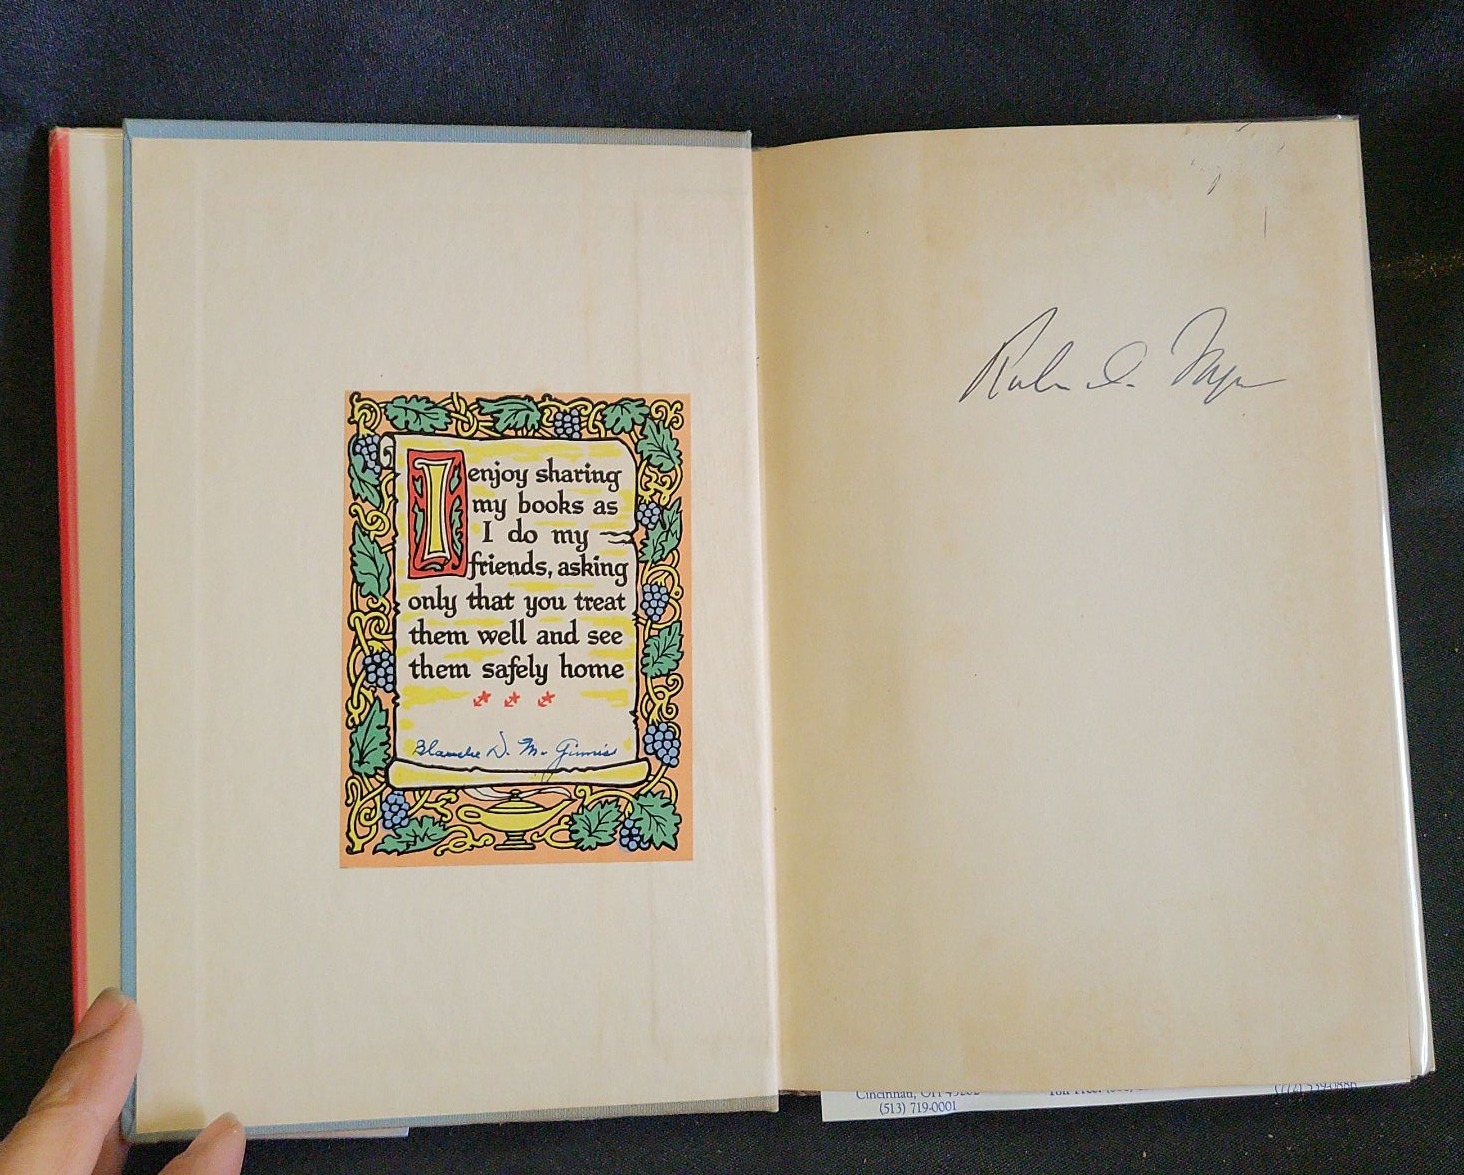 I enjoy sharing
my books as
I do my
friends, asking
only that you treat
them well and see
them safely home
Blanche D. McGinnis
Cincinnati, OH 45202
(513) 719-0001
Toll Free:
(772) 539-0886